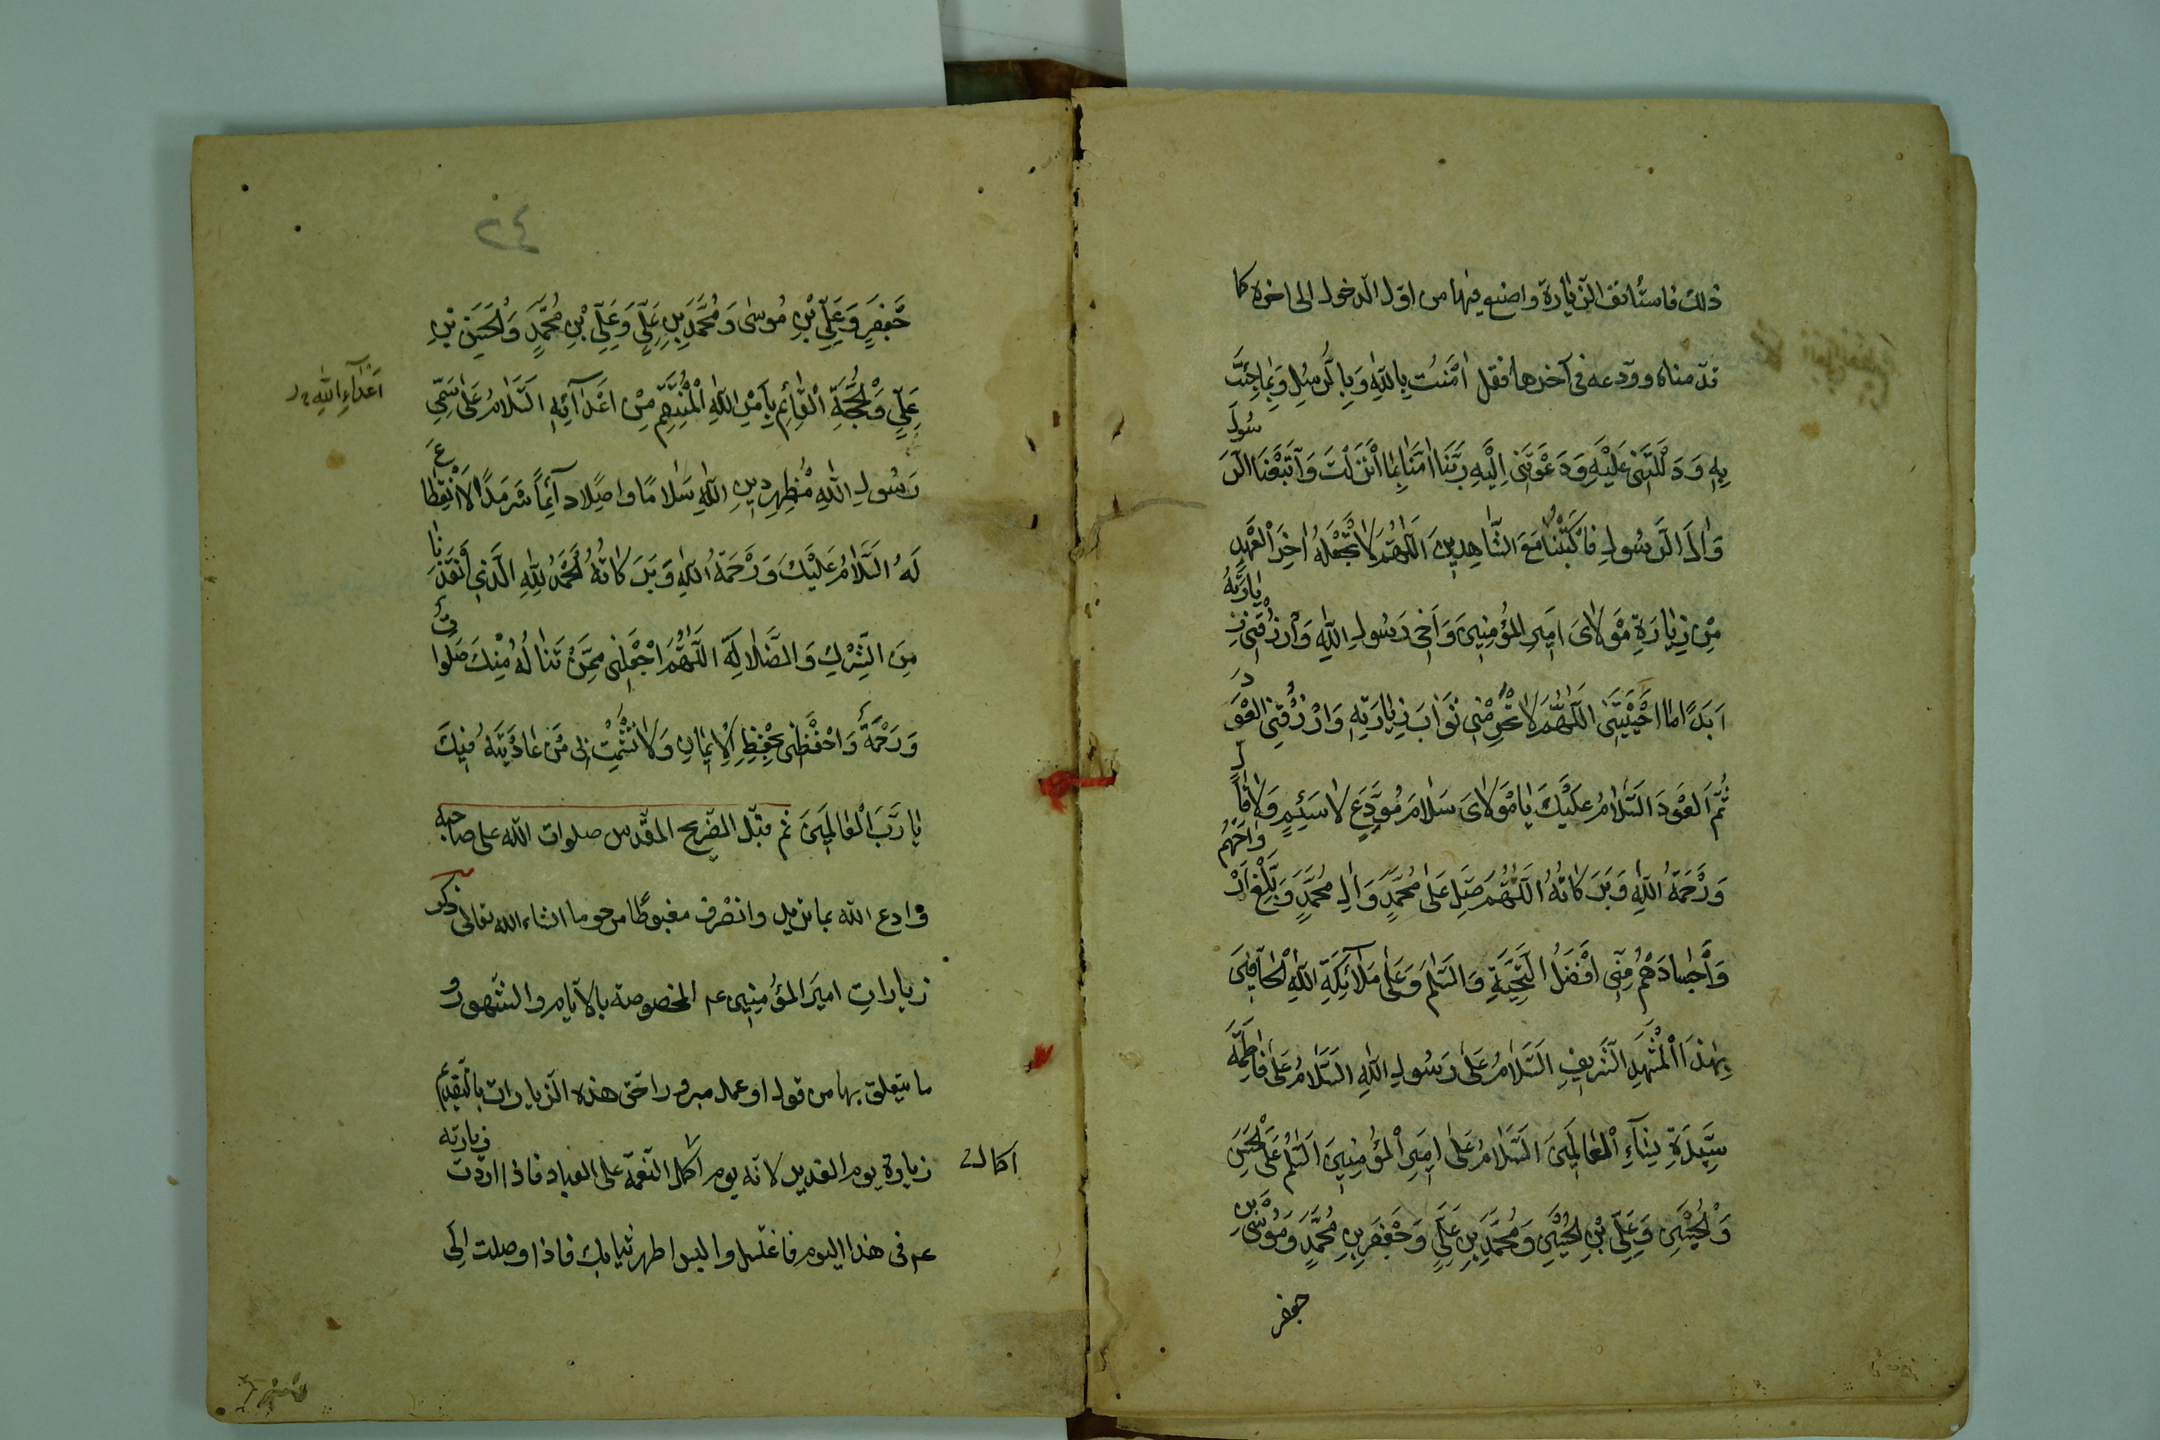 ذلك فاستأنف الزيارة واصنع فيها من اول الدخول الى اخره كما
قدمناه وودعه فى آخرها فقل اٰمَنْتُ بِاللهِ وَبِالرُّسُلِ وَبِمَا جِئْتَ
بِهِ وَدَلَلْتَنِى عَلَيْهِ وَدَعَوْتَنِى اِلَيْهِ رَبَّنَا اٰمَنَّا بِمَا اَنْزَلْتَ وَاتَّبَعْنَا الرَّسُولَ
وَاٰلَ الرَّسُولِ فَاكْتُبْنَا مَعَ الشَّاهِدِينَ اَللّٰهُمَّ لَا تَجْعَلْهُ اٰخِرَ الْعَهْدِ
مِنْ زِيَارَةِ مَوْلَاىَ اَمِيرِ الْمُؤْمِنِينَ وَاَخِى رَسُولِ اللهِ وَارْزُقْنِى زِيَارَتَهُ
اَبَدًا مَا اَحْيَيْتَنِى اَللّٰهُمَّ لَا تَحْرِمْنِى ثَوَابَ زِيَارَتِهِ وَارْزُقْنِى الْعَوْدَ
ثُمَّ الْعَوْدَ اَلسَّلَامُ عَلَيْكَ يَا مَوْلَاىَ سَلَامَ مُوَدِّعٍ لَا سَئِمٍ وَلَا قَالٍ
وَرَحْمَةُ اللهِ وَبَرَكَاتُهُ اَللّٰهُمَّ صَلِّ عَلٰى مُحَمَّدٍ وَاٰلِ مُحَمَّدٍ وَبَلِّغْ اَرْوَاحَهُمْ
وَاَجْسَادَهُمْ مِنِّى اَفْضَلَ التَّحِيَّةِ وَالسَّلَمِ وَعَلٰى مَلَآئِكَةِ اللهِ الْحَآفِّينَ
بِهٰذَا الْمَشْهَدِ الشَّرِيفِ اَلسَّلَامُ عَلٰى رَسُولِ اللهِ اَلسَّلَامُ عَلٰى فَاطِمَةَ
سَيِّدَةِ نِسَآءِ الْعَالَمِينَ اَلسَّلَامُ عَلٰى اَمِيرِ الْمُؤْمِنِينَ اَلسَّلٰمُ عَلَى الْحَسَنِ
وَالْحُسَيْنِ وَعَلِىِّ بْنِ الْحُسَيْنِ وَمُحَمَّدِ بْنِ عَلِىٍّ وَجَعْفَرِ بْنِ مُحَمَّدٍ وَمُوسَى بْنِ
جعفر
٤٢
جَعْفَرٍ وَعَلِىِّ بْنِ مُوسٰى وَمُحَمَّدِ بْنِ عَلِىٍّ وَعَلِىِّ بْنِ مُحَمَّدٍ وَالْحَسَنِ بْنِ
عَلِىٍّ وَالْحُجَّةِ الْقَائِمِ بِاَمْرِ اللهِ الْمُنْتَقِمِ مِنْ اَعْدَآئِهِ اَلسَّلَامُ عَلٰى سَمِىِّ
اَعْدَآءِ اللهِ
رَسُولِ اللهِ مُظْهِرِ دِينِ اللهِ سَلَامًا وَاصِلًا دَآئِمًا سَرْمَدًا لَا انْقِطَاعَ
لَهُ اَلسَّلَامُ عَلَيْكَ وَرَحْمَةُ اللهِ وَبَرَكَاتُهُ اَلْحَمْدُ لِلّٰهِ الَّذِى اَنْقَذَنَا
مِنَ الشِّرْكِ وَالضَّلَالَةِ اَللّٰهُمَّ اجْعَلْنِى مِمَّنْ تَنَالُهُ مِنْكَ صَلَوَاتٌ
وَرَحْمَةٌ وَاحْفَظْنِى بِحِفْظِ الْاِيمَانِ وَلَا تُشْمِتْ بِى مَنْ عَادَيْتَهُ فِيكَ
يَا رَبَّ الْعَالَمِينَ ثم قبّل الضريح المقدس صلوات الله على صاحبه
وادع الله بما تريد وانصرف مغبوطًا مرحوما انشاء الله تعالى ذكر
زيارات امير المؤمنين عم المخصوصة بالايام والشهور و
ما يتعلق بها من قول او عمل مبرور احق هذه الزيارات بالتقديم
زيارة يوم الغدير لانه يوم اكمل النعمة على العباد فاذا اردت زيارته
اكمال
عم فى هذا اليوم فاغتسل والبس اطهر ثيابك فاذا وصلت الى